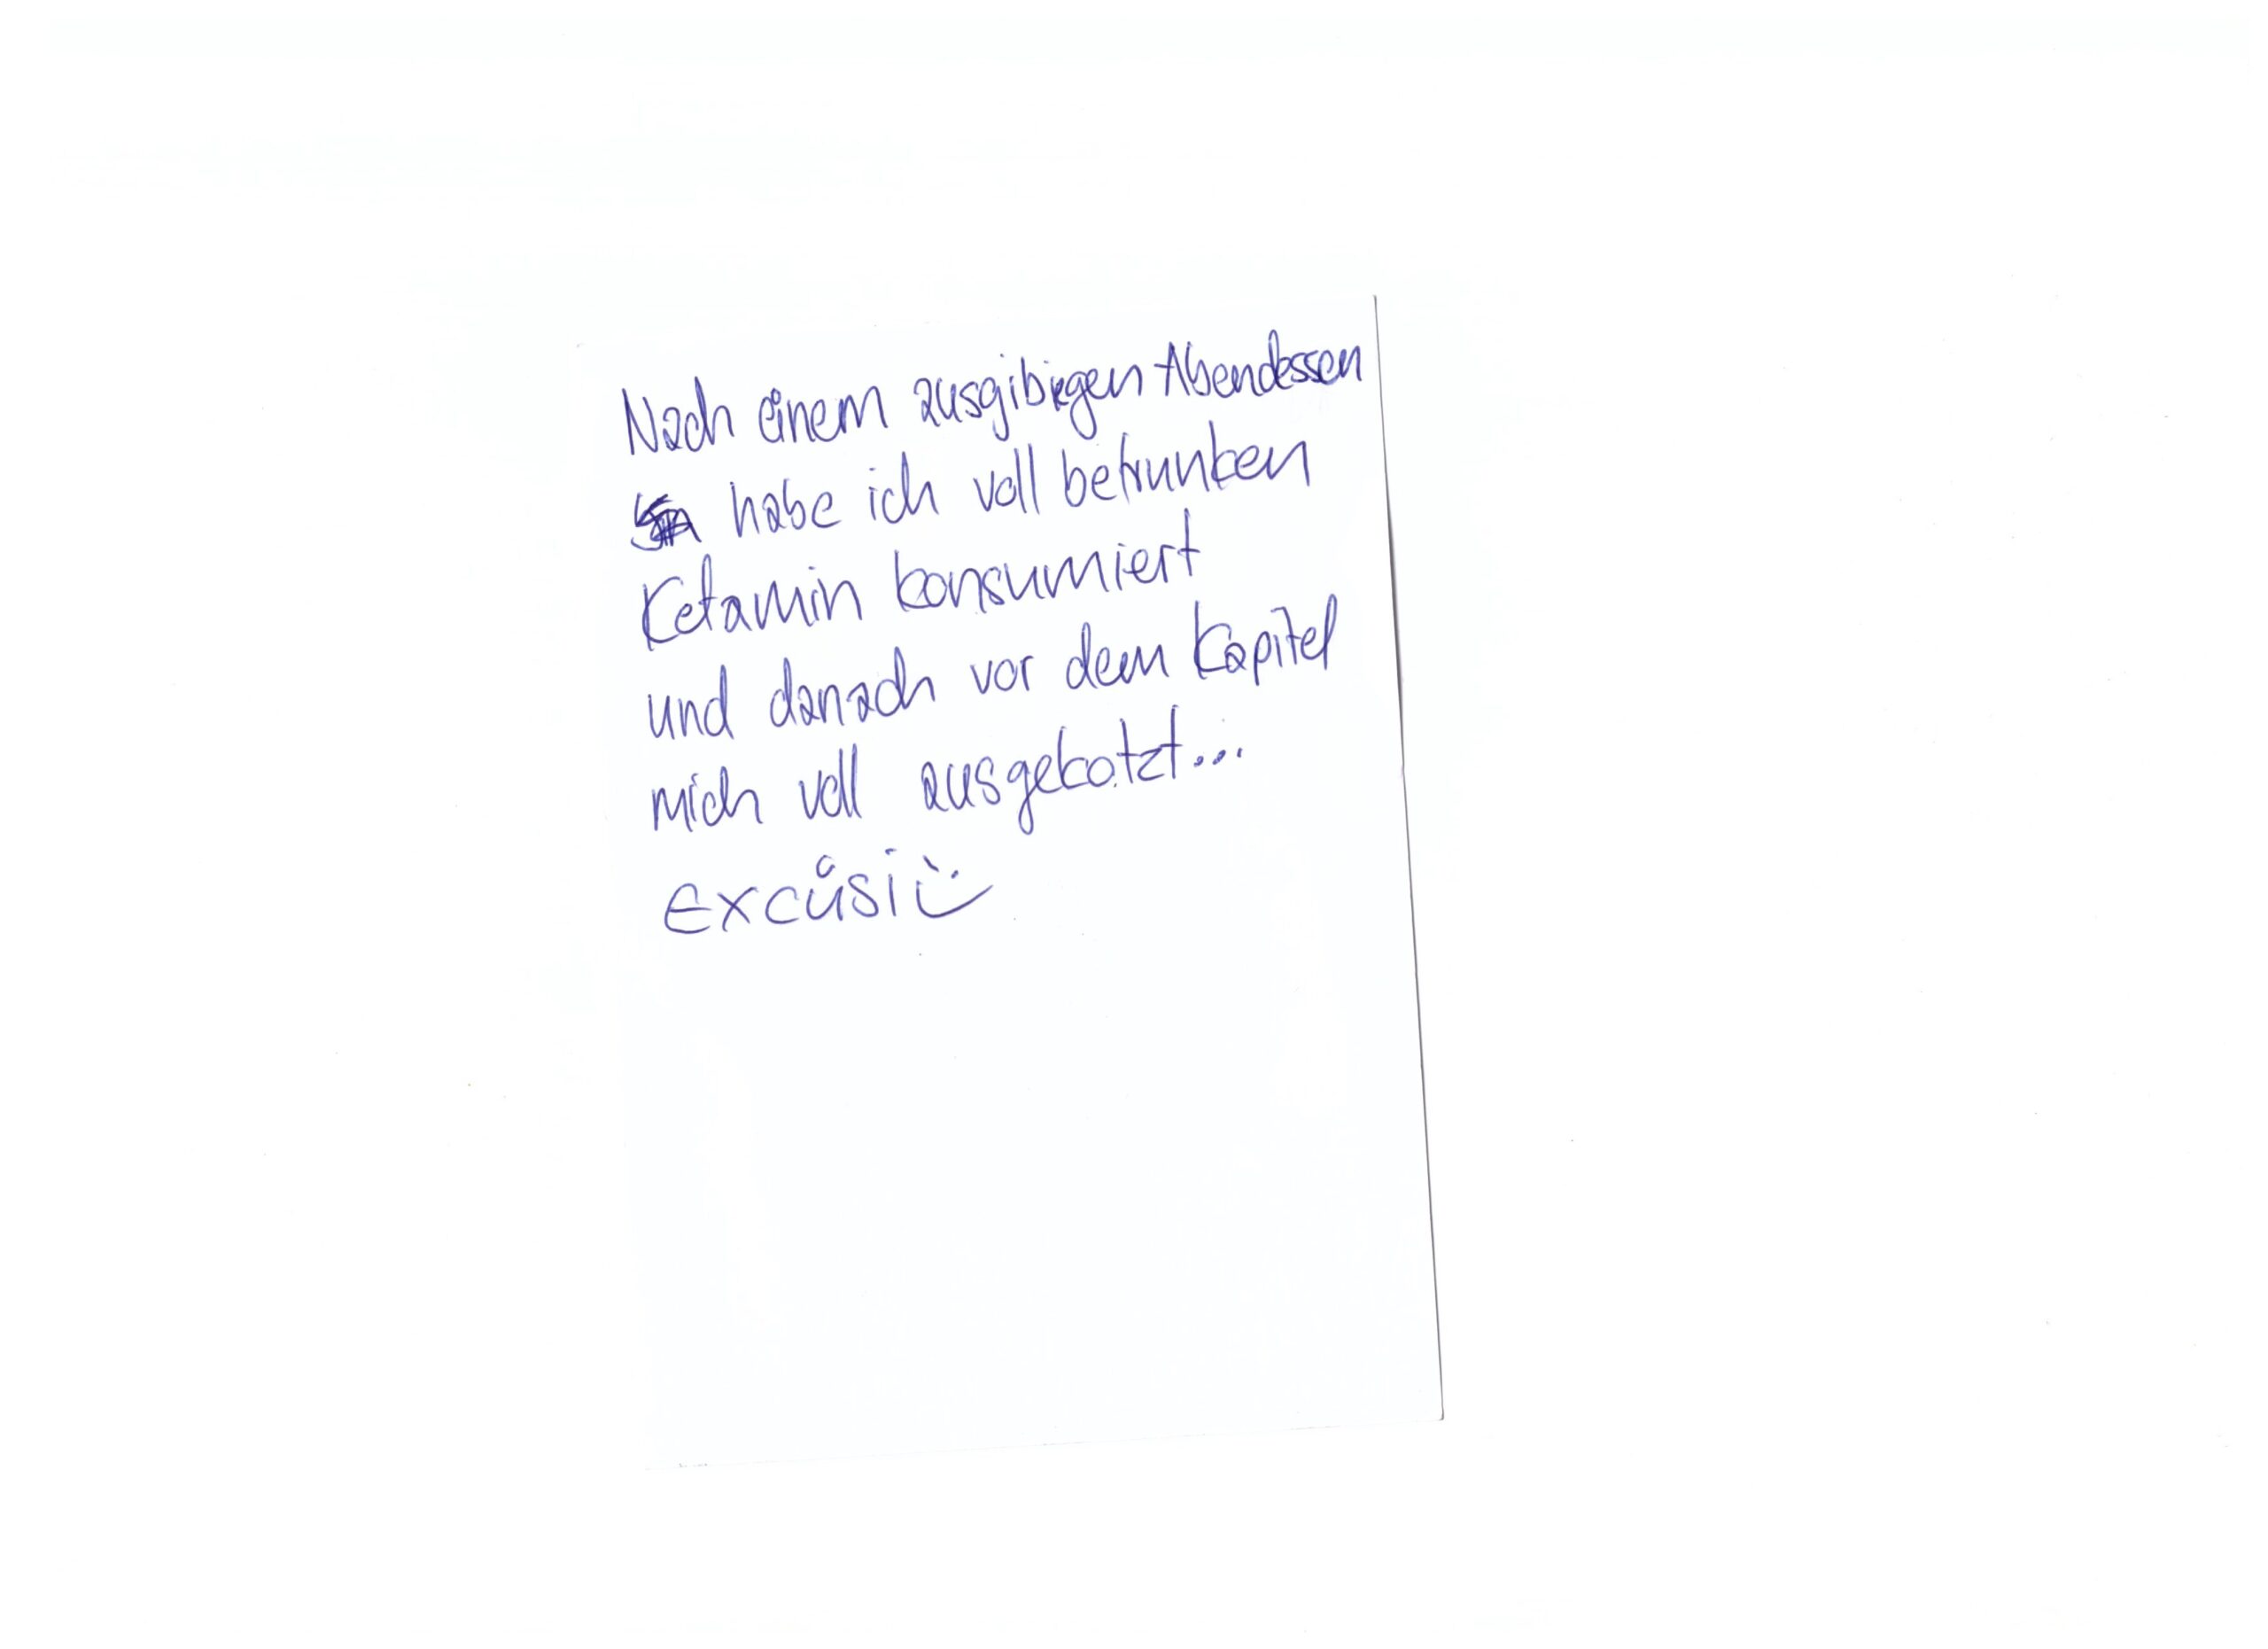 Nach einem ausgibigen Abendessen
habe ich voll betrunken
Ketamin konsumiert
und danach vor dem Kapitel
mich voll ausgekotzt...
Excüsi